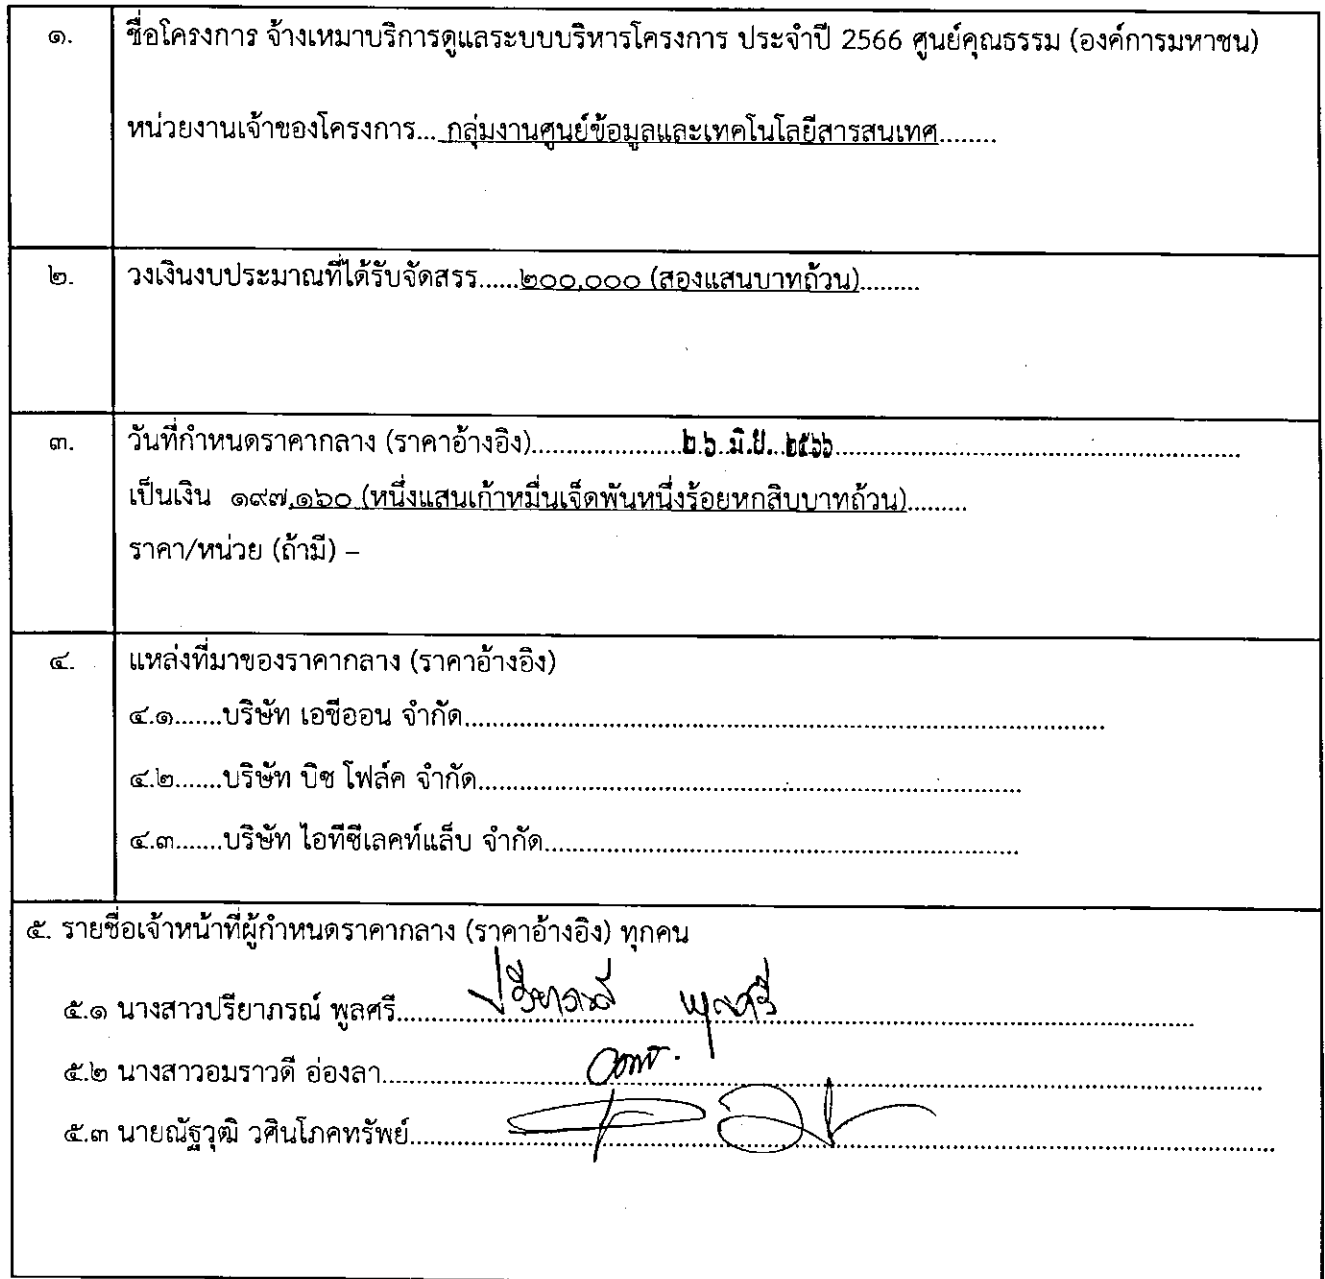 ๑. ชื่อโครงการ จ้างเหมาบริการดูแลระบบบริหารโครงการ ประจำปี 2566 ศูนย์คุณธรรม (องค์การมหาชน)
หน่วยงานเจ้าของโครงการ... กลุ่มงานศูนย์ข้อมูลและเทคโนโลยีสารสนเทศ........
๒. วงเงินงบประมาณที่ได้รับจัดสรร......๒๐๐,๐๐๐ (สองแสนบาทถ้วน).........
๓. วันที่กำหนดราคากลาง (ราคาอ้างอิง).....................๒ ๖ มิ.ย. ๒๕๖๖.....................
เป็นเงิน ๑๙๗,๑๖๐ (หนึ่งแสนเก้าหมื่นเจ็ดพันหนึ่งร้อยหกสิบบาทถ้วน).........
ราคา/หน่วย (ถ้ามี) –
๔. แหล่งที่มาของราคากลาง (ราคาอ้างอิง)
๔.๑.......บริษัท เอซีออน จำกัด.....................
๔.๒.......บริษัท บิช โฟล์ค จำกัด.....................
๔.๓.......บริษัท ไอทีซีเลคท์แล็บ จำกัด.....................
๕. รายชื่อเจ้าหน้าที่ผู้กำหนดราคากลาง (ราคาอ้างอิง) ทุกคน
๕.๑ นางสาวปรียาภรณ์ พูลศรี.......... ปรียาภรณ์ พูลศรี ..........
๕.๒ นางสาวอมราวดี อ่องลา.....................
๕.๓ นายณัฐวุฒิ วศินโภคทรัพย์.....................